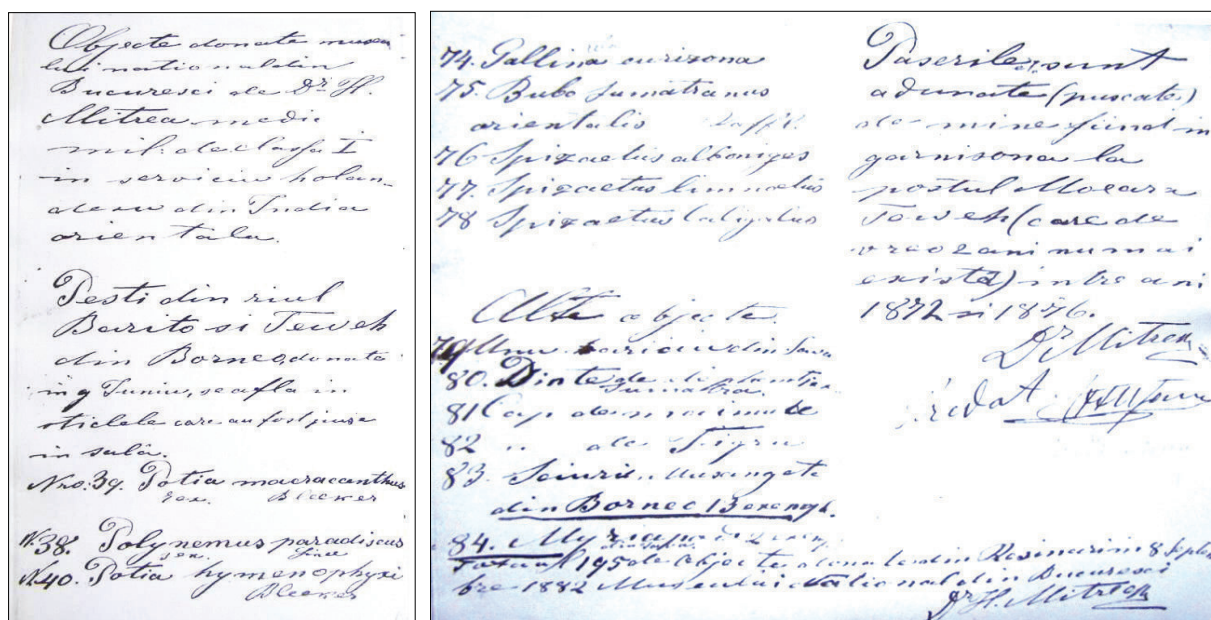 Objecte donate museu
lui national din
Bucuresci de Dr. H.
Mitrea medic
mil: de clasa I
in serviciu holan-
desu din India
orientala.
Pesti din riul
Barito si Teweh
din Borneo, donate
in 9 Juniu, se afla in
sticlele care au fost puse
in sala.
Nro: 39. Potia macracanthus
Bleeker
N. 38. Polynemus paradiseus
N. 40. Potia hymenophysi
Bleeker
74. Gallina curizona
75. Bubo sumatranus
orientalis Raffl.
76 Spizaetus alboniger
77. Spizaetus limnaetus
78 Spizaetus caligatus
Alte objecte.
79 Unu din Java
80. Dinte de
Sumatra.
81 Cap de maimutze
82 " de Tigru
83. Sciuri
din Borneo 13 exempl.
84. Myriapode 2 exempl.
195 de objecte donate din Resinari in 8 Septem
bre 1882 Museului National din Bucuresci
Dr H. Mitrea
Paserile sunt
adunate (puscate)
de mine fiind in
garnisona la
postul Moeara
Teweh (care de
vreo 2 ani nu mai
existâ) intre ani
1872 si 1876.
Dr Mitrea